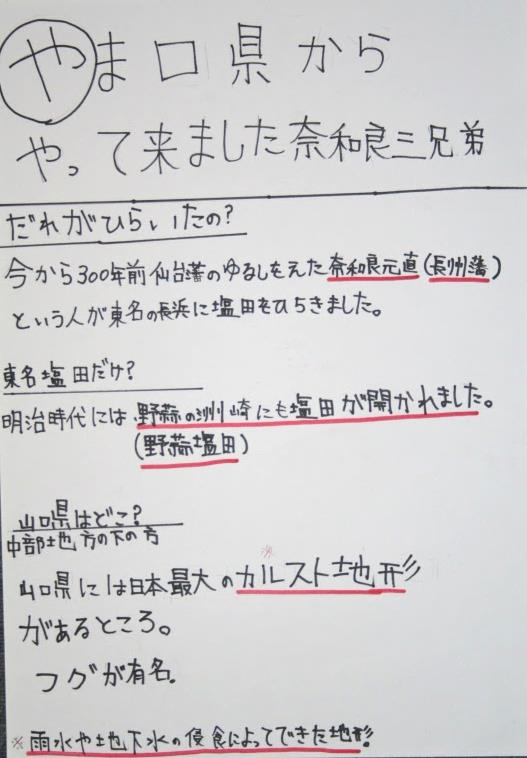 やま口県から
やって来ました奈和良三兄弟
だれがひらいたの?
今から300年前仙台藩のゆるしをえた奈和良元直(長州藩)
という人が東名の長浜に塩田をひらきました。
東名塩田だけ?
明治時代には野蒜の洲崎にも塩田が開かれました。
(野蒜塩田)
山口県はどこ?
中部地方の下の方
山口県には日本最大のカルスト地形
※
があるところ。
フグが有名。
※雨水や地下水の侵食によってできた地形!